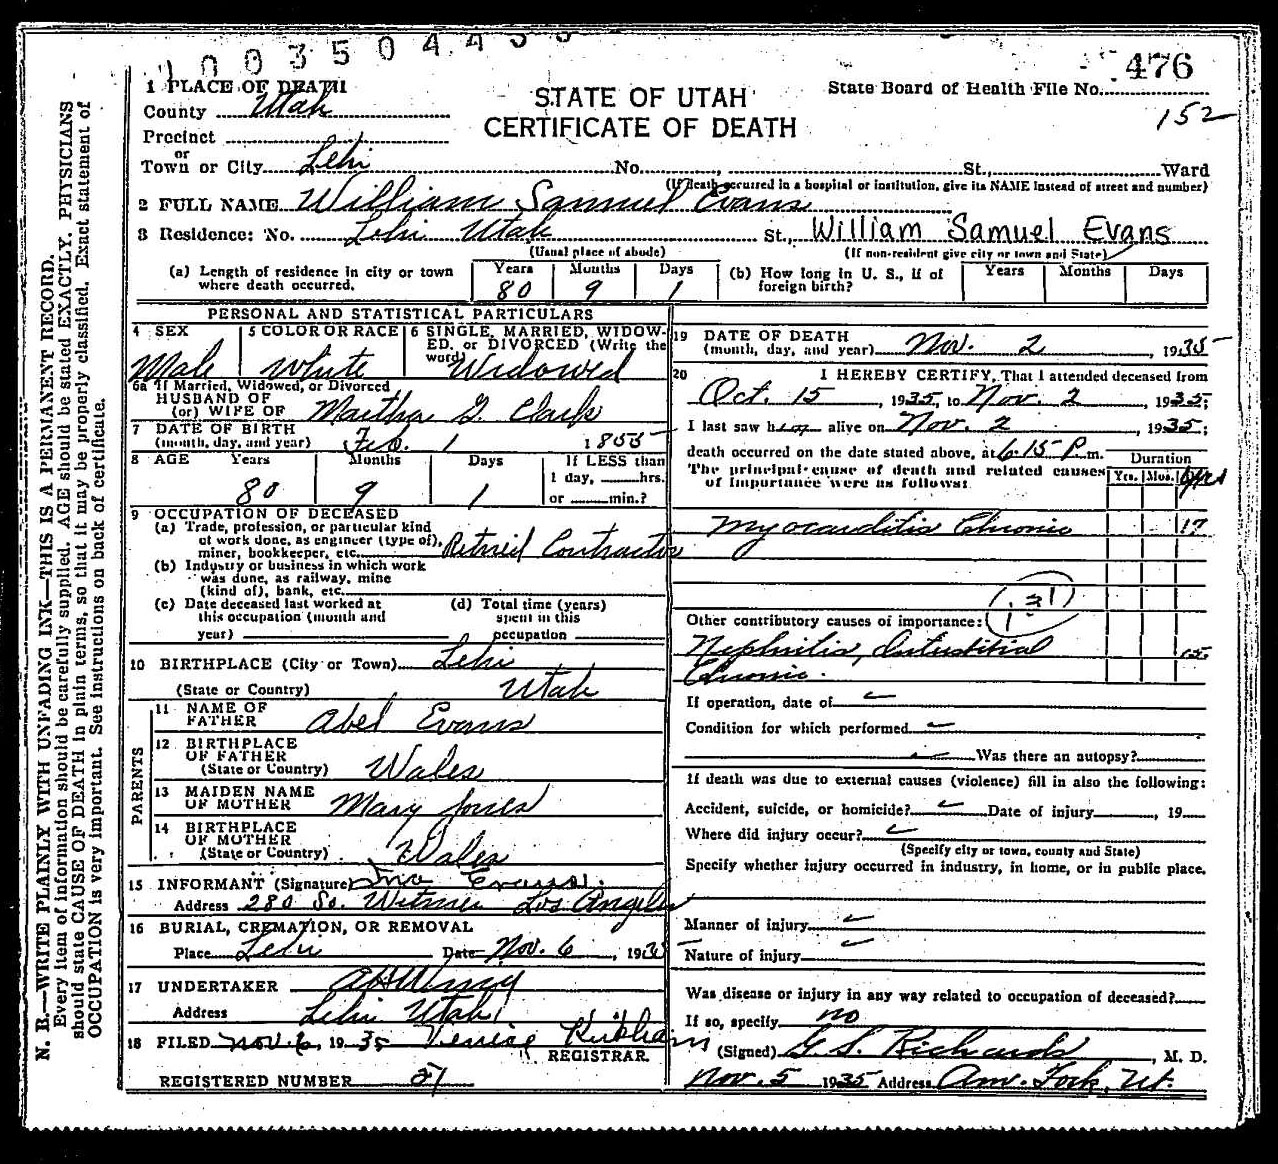 1003504
476
152
1 PLACE OF DEATH
County Utah
Precinct
or
Town or City Lehi No. , St., Ward
STATE OF UTAH
CERTIFICATE OF DEATH
State Board of Health File No.
(If death occurred in a hospital or institution, give its NAME instead of street and number)
2 FULL NAME William Samuel Evans
3 Residence: No. Lehi Utah St., William Samuel Evans
(Usual place of abode) (If non-resident give city or town and State)
(a) Length of residence in city or town where death occurred. Years 80 Months 9 Days 1
(b) How long in U. S., if of foreign birth? Years Months Days
PERSONAL AND STATISTICAL PARTICULARS
4 SEX Male
5 COLOR OR RACE White
6 SINGLE, MARRIED, WIDOWED, or DIVORCED (Write the word) Widowed
6a If Married, Widowed, or Divorced
HUSBAND OF
(or) WIFE OF Martha G. Clark
7 DATE OF BIRTH
(month, day, and year) Feb. 1 1855
8 AGE Years 80 Months 9 Days 1
If LESS than
1 day, hrs.
or min.?
9 OCCUPATION OF DECEASED
(a) Trade, profession, or particular kind
of work done, as engineer (type of),
miner, bookkeeper, etc. Retired Contractor
(b) Industry or business in which work
was done, as railway, mine
(kind of), bank, etc.
(c) Date deceased last worked at
this occupation (month and
year)
(d) Total time (years)
spent in this
occupation
10 BIRTHPLACE (City or Town) Lehi
(State or Country) Utah
PARENTS
11 NAME OF
FATHER Abel Evans
12 BIRTHPLACE
OF FATHER
(State or Country) Wales
13 MAIDEN NAME
OF MOTHER Mary Jones
14 BIRTHPLACE
OF MOTHER
(State or Country) Wales
15 INFORMANT (Signature) Evans.
Address 280 So. Witmer Los Angeles
16 BURIAL, CREMATION, OR REMOVAL
Place Lehi Date Nov. 6, 1935
17 UNDERTAKER
Address Lehi Utah
18 FILED Nov. 6, 1935 Kirkham
REGISTRAR.
REGISTERED NUMBER 27
19 DATE OF DEATH
(month, day, and year) Nov. 2, 1935
20 I HEREBY CERTIFY, That I attended deceased from
Oct. 15, 1935, to Nov. 2, 1935;
I last saw him alive on Nov. 2, 1935;
death occurred on the date stated above, at 6:15 P m.
The principal cause of death and related causes
of importance were as follows:
Duration
Yrs. Mos.
Myocarditis Chronic 17
Other contributory causes of importance:
131
Nephritis, Interstitial 15
Chronic.
If operation, date of
Condition for which performed
Was there an autopsy?
If death was due to external causes (violence) fill in also the following:
Accident, suicide, or homicide? Date of injury , 19
Where did injury occur?
(Specify city or town, county and State)
Specify whether injury occurred in industry, in home, or in public place.
Manner of injury
Nature of injury
Was disease or injury in any way related to occupation of deceased?
If so, specify no
(Signed) G. S. Richards, M. D.
Nov. 5 1935 Address Am. Fork, Ut.
N. B.—WRITE PLAINLY WITH UNFADING INK—THIS IS A PERMANENT RECORD.
Every item of information should be carefully supplied. AGE should be stated EXACTLY. PHYSICIANS
should state CAUSE OF DEATH in plain terms, so that it may be properly classified. Exact statement of
OCCUPATION is very important. See instructions on back of certificate.